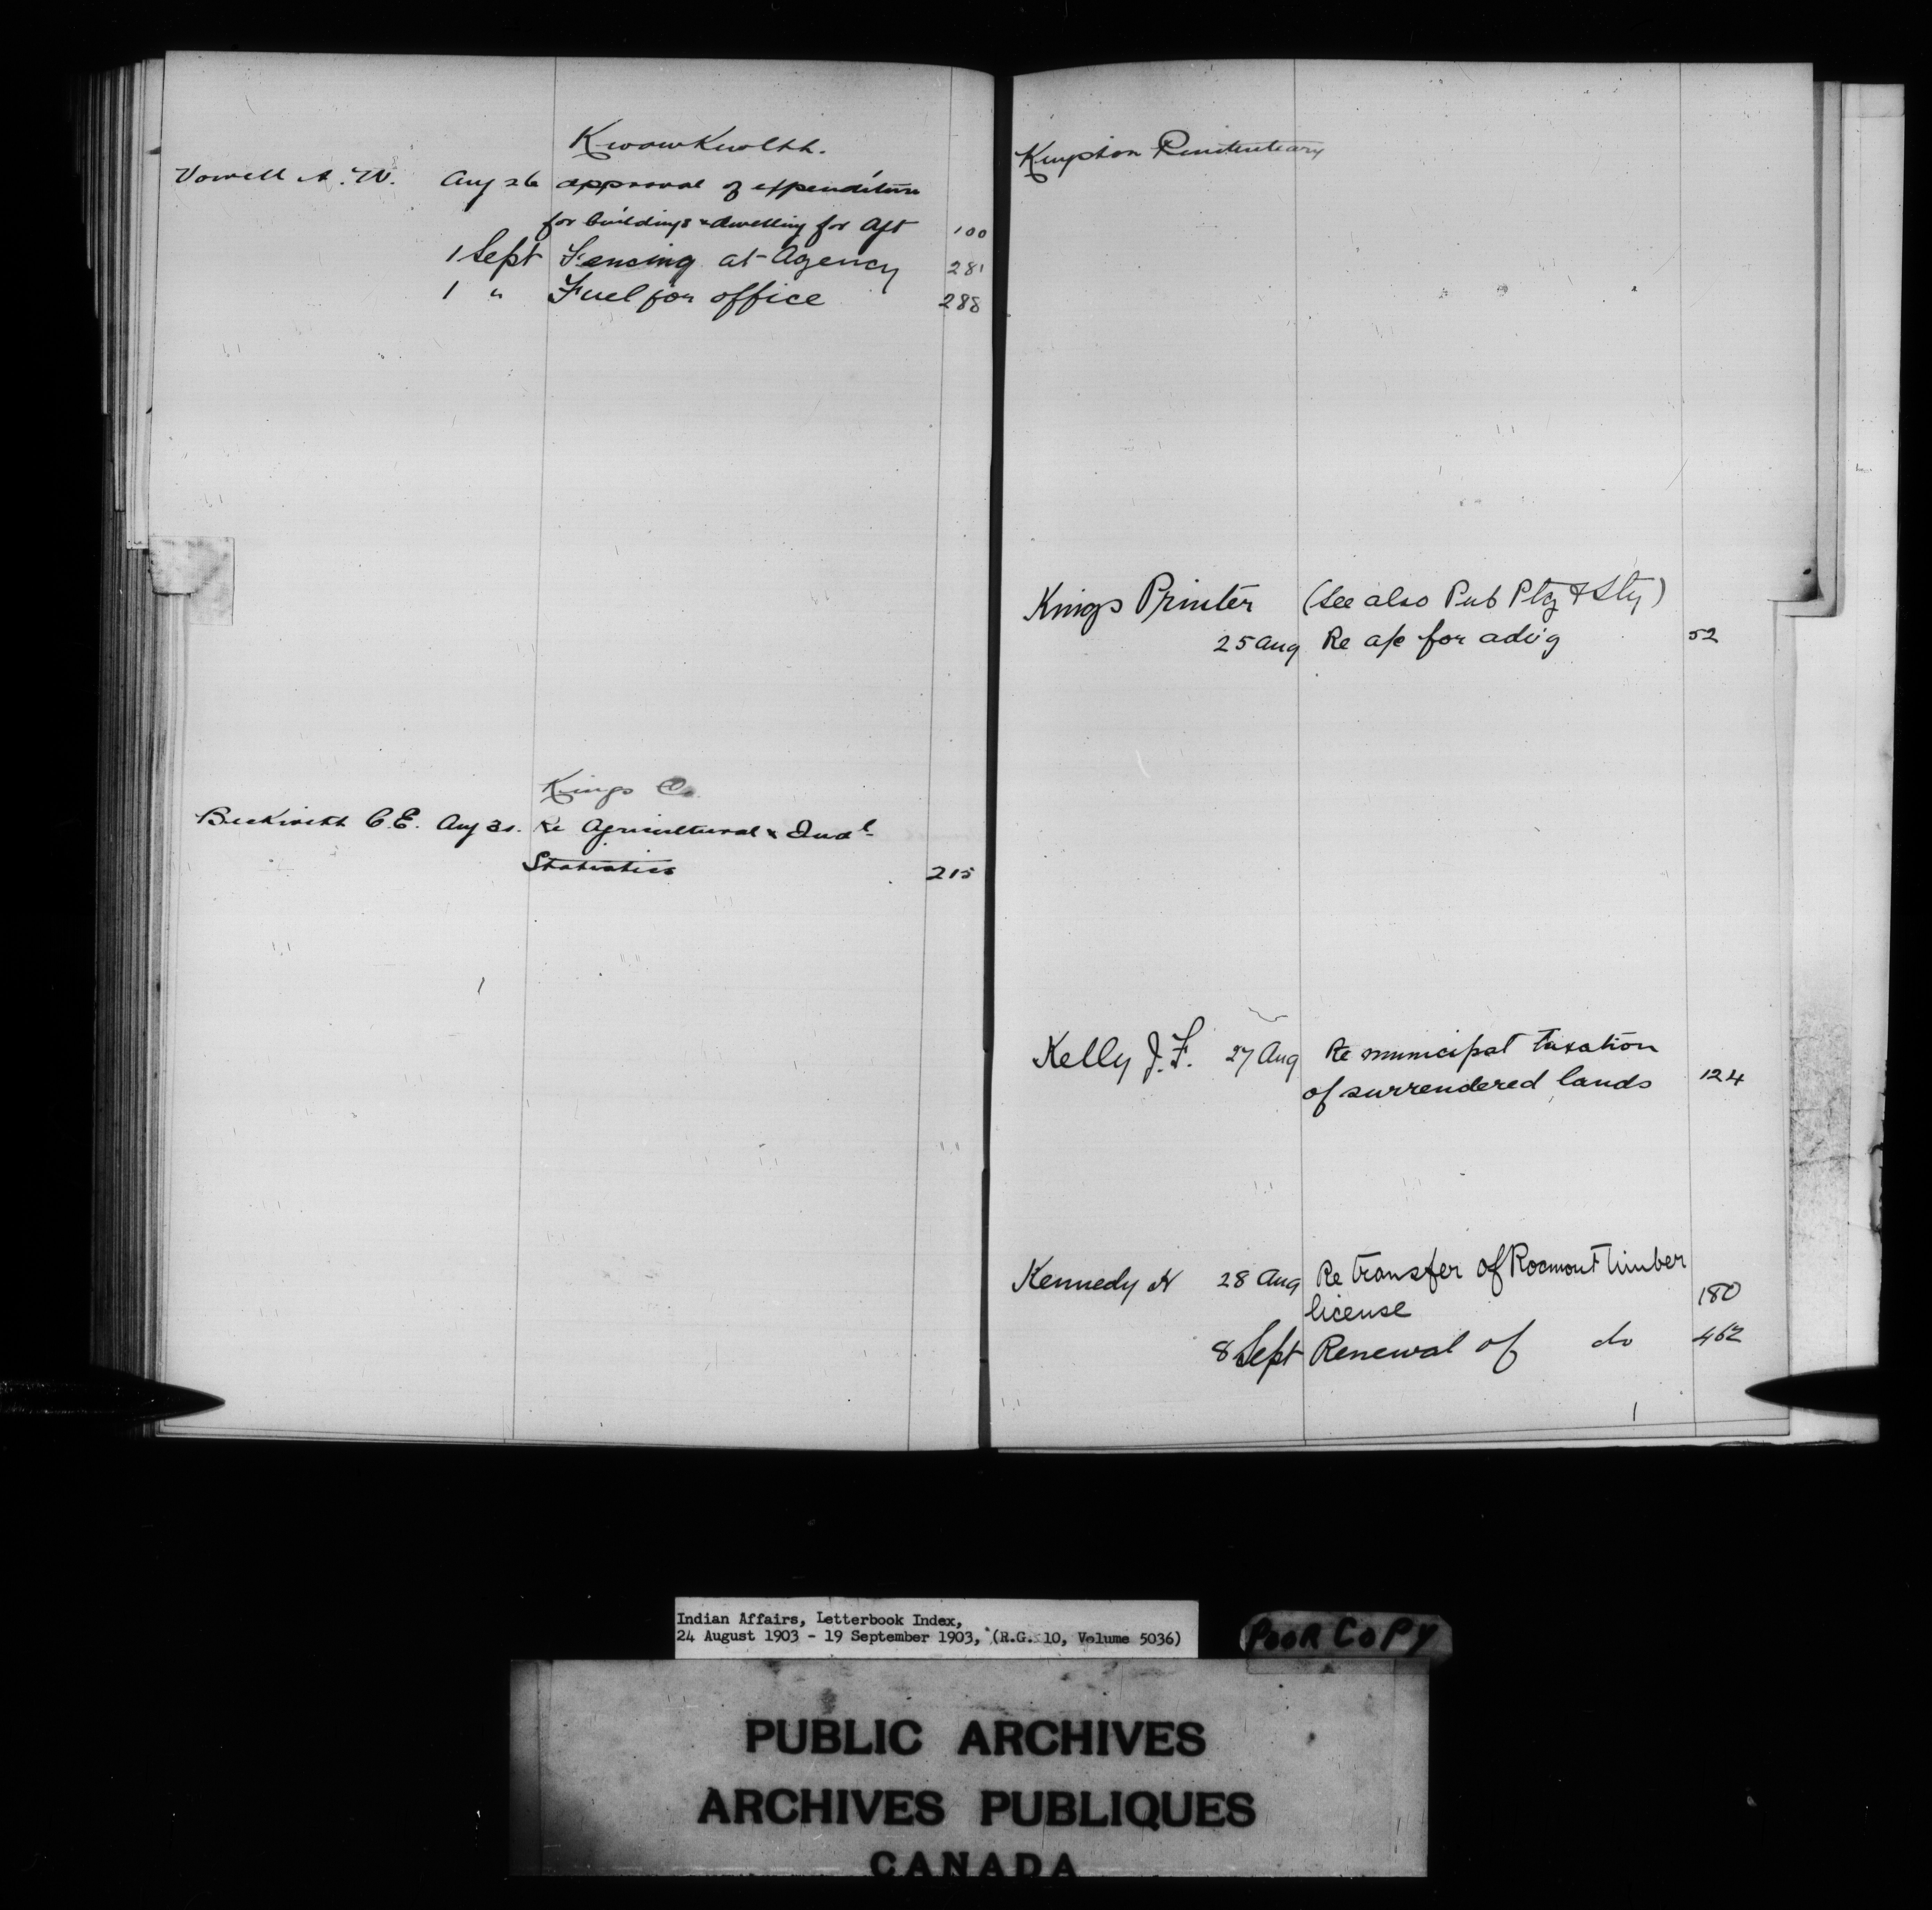 Kwawkwelth.
Vowell A. W. Aug 26 approval of expenditure
for buildings & dwelling for Agt 100
1 Sept Fencing at Agency 281
1 " Fuel for office 288
Kings Co.
Beckwith C.E. Aug 31. Re Agricultural & Indl
Statistics 215
Kingston Penitentiary
Kings Printer (See also Pub Ptg & Sty)
25 Aug Re a/c for advg 52
Kelly J. F. 27 Aug Re municipal taxation
of surrendered lands 124
Kennedy H 28 Aug Re transfer of Rosmont timber
license 180
8 Sept Renewal of do 462
Indian Affairs, Letterbook Index,
24 August 1903 - 19 September 1903, (R.G. 10, Volume 5036)
POOR COPY
PUBLIC ARCHIVES
ARCHIVES PUBLIQUES
CANADA